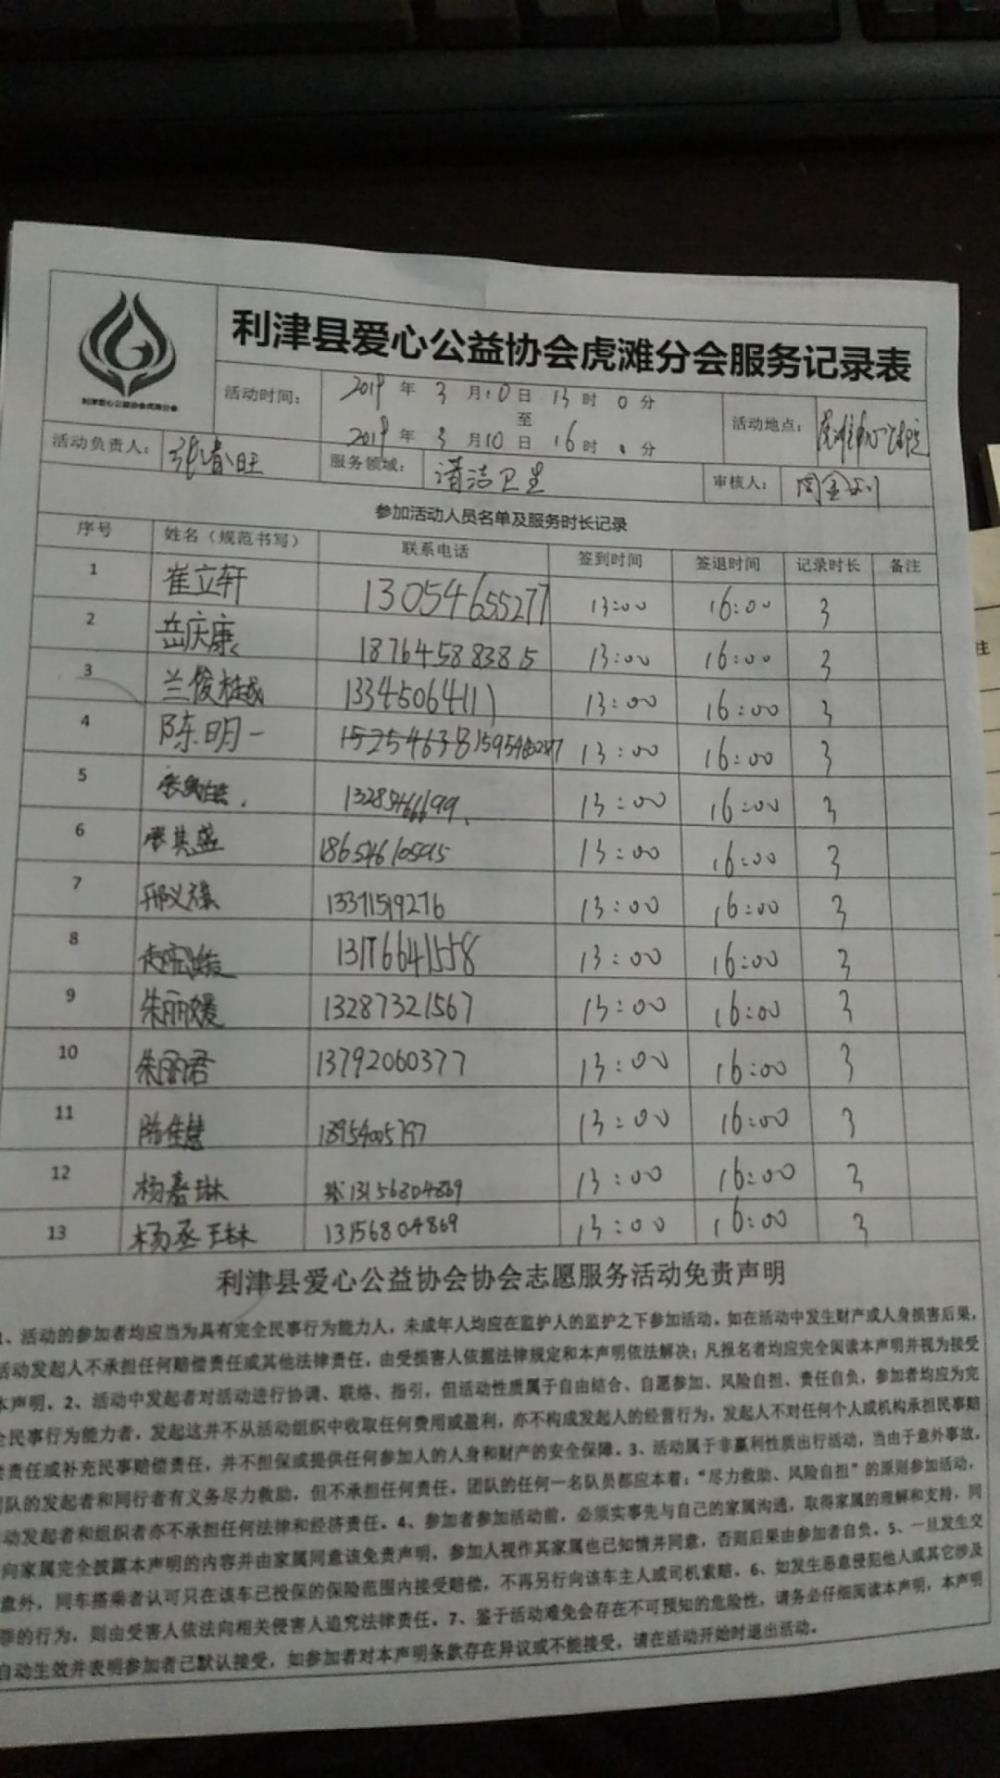 利津县爱心公益协会虎滩分会服务记录表
利津爱心公益协会虎滩分会
活动时间： 2019 年 3 月 10 日 13 时 0 分
至
2019 年 3 月 10 日 16 时 0 分
活动地点：
活动负责人： 张春旺 服务领域： 清洁卫生 审核人：
参加活动人员名单及服务时长记录
序号 姓名（规范书写） 联系电话 签到时间 签退时间 记录时长 备注
1 崔立轩 13054655277 13:00 16:00 3
2 岳庆康 18764588385 13:00 16:00 3
3 兰俊 13345064111 13:00 16:00 3
4 陈明一 13:00 16:00 3
5 13:00 16:00 3
6 张其盛 18654610595 13:00 16:00 3
7 邢义 13371519276 13:00 16:00 3
8 13176641558 13:00 16:00 3
9 朱丽媛 13287321567 13:00 16:00 3
10 朱丽君 13792060377 13:00 16:00 3
11 陈佳慧 18954005797 13:00 16:00 3
12 杨嘉琳 13156804869 13:00 16:00 3
13 杨丞琳 13156804869 13:00 16:00 3
利津县爱心公益协会协会志愿服务活动免责声明
1、活动的参加者均应当为具有完全民事行为能力人，未成年人均应在监护人的监护之下参加活动。如在活动中发生财产或人身损害后果，
活动发起人不承担任何赔偿责任或其他法律责任，由受损害人依据法律规定和本声明依法解决；凡报名者均应完全阅读本声明并视为接受
本声明。2、活动中发起者对活动进行协调、联络、指引，但活动性质属于自由结合、自愿参加、风险自担、责任自负，参加者均应为完
全民事行为能力者，发起这并不从活动组织中收取任何费用或盈利，亦不构成发起人的经营行为，发起人不对任何个人或机构承担民事赔
偿责任或补充民事赔偿责任，并不担保或提供任何参加人的人身和财产的安全保障。3、活动属于非赢利性质出行活动，当由于意外事故，
团队的发起者和同行者有义务尽力救助，但不承担任何责任。团队的任何一名队员都应本着：“尽力救助、风险自担”的原则参加活动，
动发起者和组织者亦不承担任何法律和经济责任。4、参加者参加活动前，必须实事先与自己的家属沟通，取得家属的理解和支持，同
向家属完全披露本声明的内容并由家属同意该免责声明，参加人视作其家属也已知情并同意，否则后果由参加者自负。5、一旦发生交
意外，同车搭乘者认可只在该车已投保的保险范围内接受赔偿，不再另行向该车主人或司机索赔。6、如发生恶意侵犯他人或其它涉及
罪的行为，则由受害人依法向相关侵害人追究法律责任。7、鉴于活动难免会存在不可预知的危险性，请务必仔细阅读本声明，本声明
自动生效并表明参加者已默认接受，如参加者对本声明条款存在异议或不能接受，请在活动开始时退出活动。
注